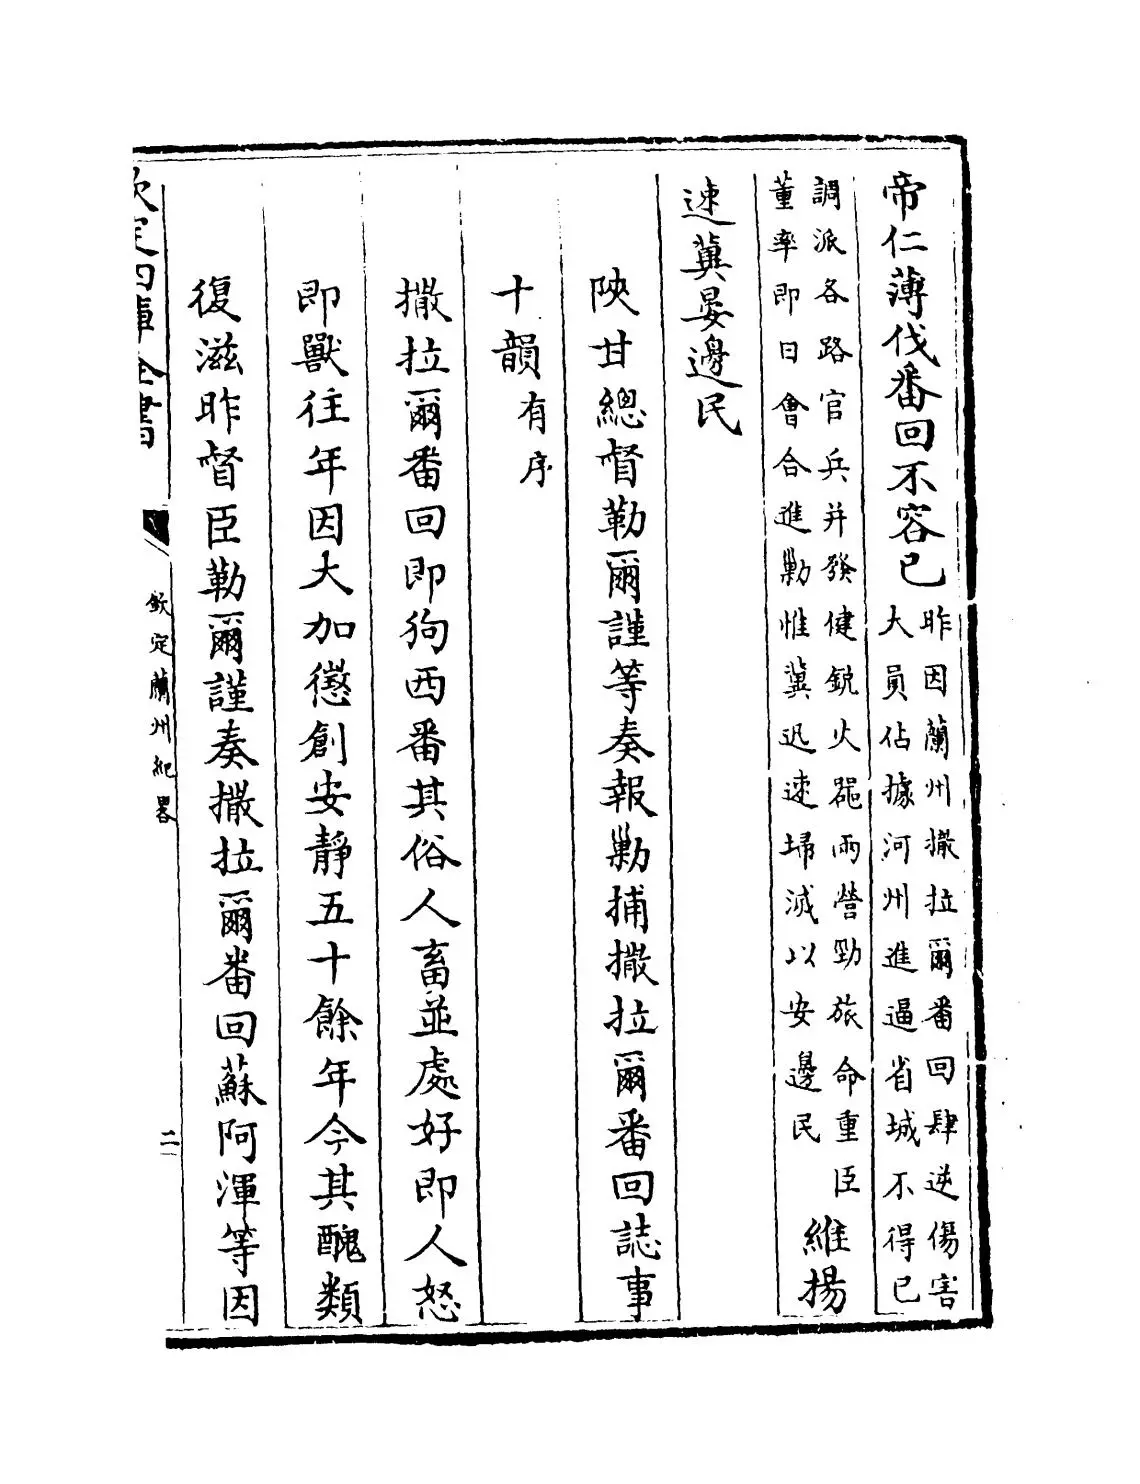 帝仁薄伐番回不容已昨因蘭州撒拉爾番回肆逆傷害
大員佔據河州進逼省城不得已
調派各路官兵并發健銳火器兩營勁旅命重臣
董率即日會合進勦惟冀迅速埽滅以安邊民維揚
速冀晏邊民
陜甘總督勒爾謹等奏報勦捕撒拉爾番回誌事
十韻有序
撒拉爾番回即狥西番其俗人畜並處好即人怒
即獸往年因大加懲創安靜五十餘年今其醜類
復滋昨督臣勒爾謹奏撒拉爾番回蘇阿渾等因
欽定四庫全書
欽定蘭州紀畧
二